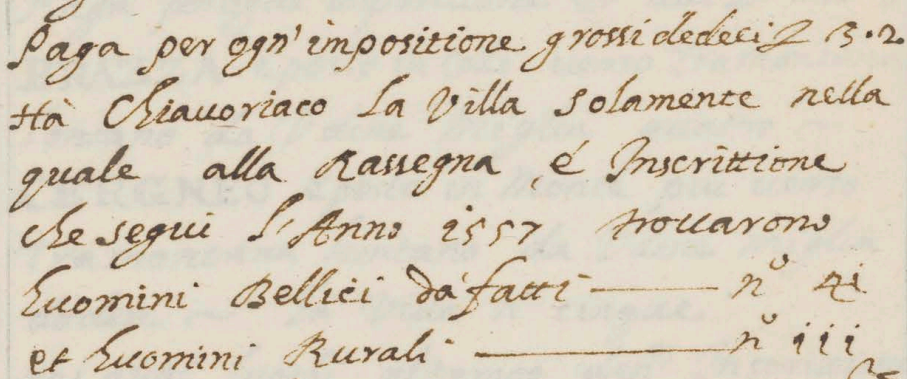 Paga per ogn' impositione grossi dedeci £ 3.2.
Hà Chiauoriaco la Villa solamente nella
quale alla Rassegna é Inscrittione
che segui l'Anno 1557 trouarono
huomini Bellici dà fatti — n.º 41
et huomini Rurali — n.º 111